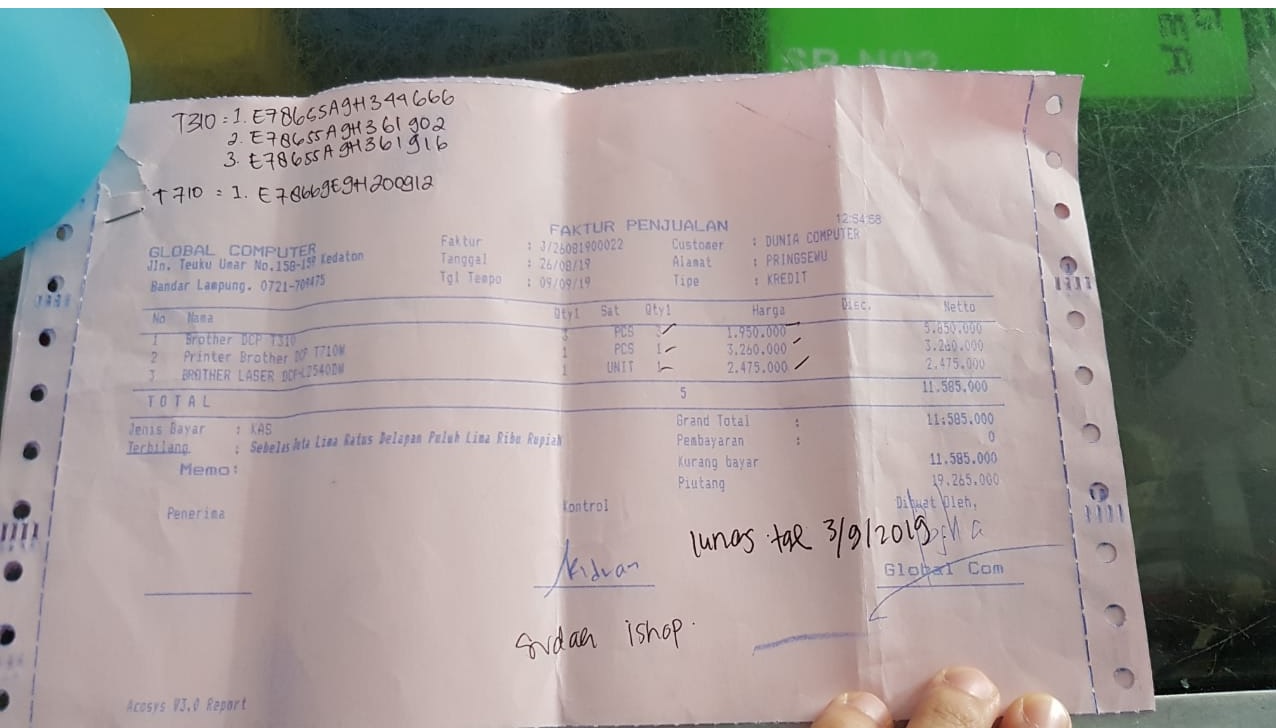 T310 = 1. E78655A9H344666
2. E78655A9H361902
3. E78655A9H361916
T710 = 1. E78669E9H200912
FAKTUR PENJUALAN 12:54:58
GLOBAL COMPUTER Faktur : J/26081900022 Customer : DUNIA COMPUTER
Jln. Teuku Umar No.158-159 Kedaton Tanggal : 26/08/19 Alamat : PRINGSEWU
Bandar Lampung. 0721- Tgl Tempo : 09/09/19 Tipe : KREDIT
No Nama Qty1 Sat Qty1 Harga Disc. Netto
1 Brother DCP T310 3 PCS 3 1.950.000 5.850.000
2 Printer Brother DCP T710W 1 PCS 1 3.260.000 3.260.000
3 BROTHER LASER DCP-L2540DW 1 UNIT 1 2.475.000 2.475.000
TOTAL 5 11.585.000
Jenis Bayar : KAS Grand Total : 11.585.000
Terbilang : Sebelas Juta Lima Ratus Delapan Puluh Lima Ribu Rupiah Pembayaran : 0
Memo: Kurang bayar 11.585.000
Piutang 19.265.000
Penerima Kontrol Dibuat Oleh,
lunas tgl 3/9/2019
Ridwan Global Com
sudah ishop.
Acosys V3.0 Report